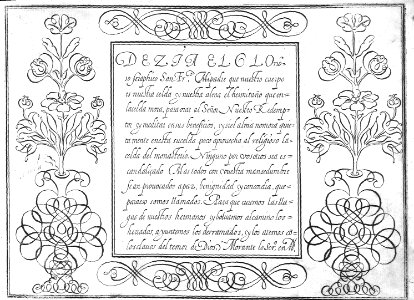 DEZIA EL GLORio
so seraphico San Frco. Mi padre que nuestro cuerpo
es nuestra celda, y nuestra alma el hermitaño que en
la celda mora, para orar al Señor Nuestro Redemp-
tor y meditar en sus beneficios, y si el alma no mora quie
tamente en esta su celda poco aprovecha al religioso la
celda del monasterio. Ninguno por vosotros sea es-
candalizado. Mas todos con vuestra mansedumbre
sean provocados a paz, benignidad y concordia, que
para eso somos llamados. Para que curemos las lla-
gas de nuestros hermanos y bolvamos al camino los
herrados, a
los del temor de Dios. Morante lo scr. en M